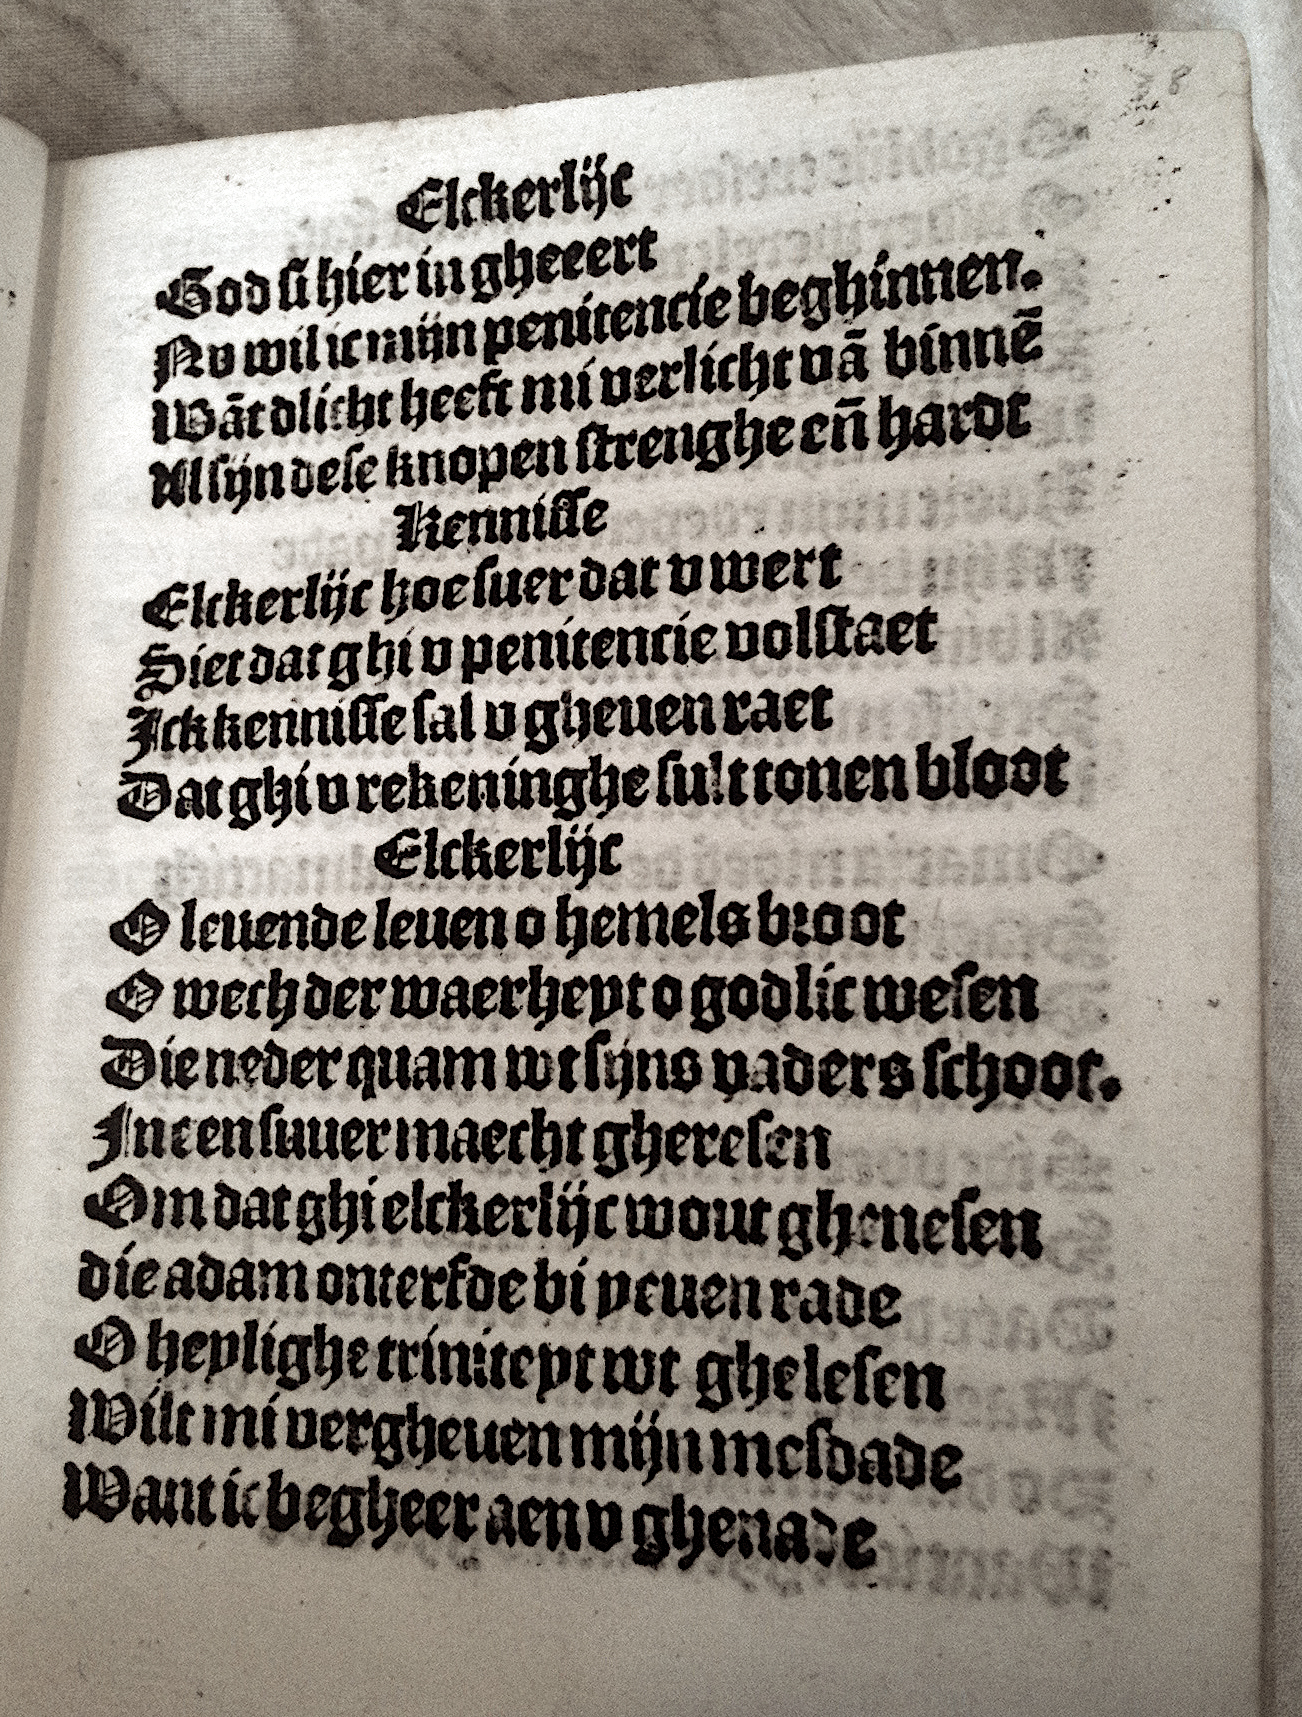 Elckerlijc
God si hier in gheeert
Nv wil ic mijn penitencie beghinnen.
Wāt dlicht heeft mi verlicht vā binnē
Al sijn dese knopen strenghe eñ hardt
Kennisse
Elckerlijc hoe suer dat v wert
Siet dat ghi v penitencie volstaet
Ick kennisse sal v gheuen raet
Dat ghi v rekeninghe sult tonen bloot
Elckerlijc
O leuende leuen o hemels broot
O wech der waerheyt o godlic wesen
Die neder quam wt sijns vaders schoot.
In een suuer maecht gheresen
Om dat ghi elckerlijc wout ghenesen
die adam onterfde bi yeuen rade
O heylighe triniteyt wt ghelesen
Wilt mi vergheuen mijn mesdade
Want ic begheer aen v ghenade